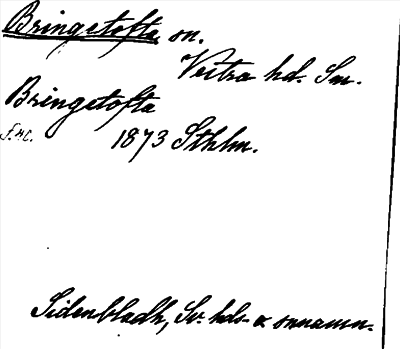 Bringetofta sn.
Vestra hd. Sm.
Bringetofta
f.
1873 Sthlm.
Sidenbladh, Sv. hds- & snnamn.